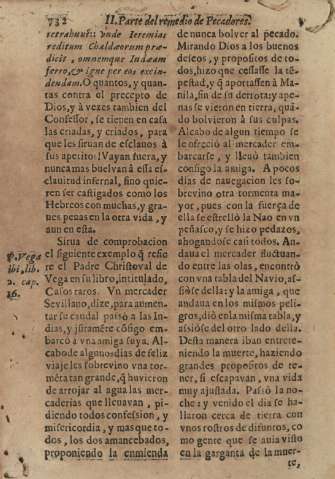 732 II. Parte del remedio de Pecadores.
retrahuut: Vnde Ieremias
reditum Chaldæorum præ-
dicit, omnemque Iudæam
ferro, & igne per eos excin-
dendam. O quantos, y quan-
tas contra el precepto de
Dios, y à vezes tambien del
Confessor, se tienen en casa
las criadas, y criados, para
que les siruan de esclauos à
sus apetito! Vayan fuera, y
nunca mas buelvan à esta es-
clauitud infernal, sino quie-
ren ser castigados como los
Hebreos con muchas, y gra-
ues penas en la otra vida, y
aun en esta.
Sirua de comprobacion
el siguiente exemplo q̃ refie
re el Padre Christoval de
Vega en su libro, intitulado,
Casos raros. Vn mercader
Sevillano, dize, para aumen-
tar su caudal passò à las In-
dias, y juntamẽte cõsigo em-
barcò à vna amiga suya. Al-
cabo de algunos dias de feliz
viaje les sobrevino vna tor-
mẽta tan grande, q̃ huvieron
de arrojar al agua las mer-
caderias que lleuavan, pi-
diendo todos confession, y
misericordia, y mas que to-
dos, los dos amancebados,
proponiendo la enmienda
P. Vega
ibi, lib.
2. cap.
16.
de nunca bolver al pecado.
Mirando Dios à los buenos
deseos, y propositos de to-
dos, hizo que cessasse la tẽ-
pestad, y q̃ aportassen à Ma-
nila, sin de su derrota; y ape-
nas se vieron en tierra, quã-
do bolvieron à sus culpas.
Alcabo de algun tiempo se
le ofreciò al mercader em-
barcarse, y lleuò tambien
consigo la amiga. A pocos
dias de navegacion les so-
brevino otra tormenta ma-
yor, pues con la fuerça de
ella se estrellò la Nao en vn
peñasco, y se hizo pedazos,
ahogandose casi todos. An-
daua el mercader fluctuan-
do entre las olas, encontrò
con vna tabla del Navio, as-
siòse della: y la amiga, que
andaua en los mismos peli-
gros, diò en la misma tabla, y
assiòse del otro lado della.
Desta manera iban entrete-
niendo la muerte, haziendo
grandes propositos de te-
ner, si escapavan, vna vida
muy ajustada. Passò la no-
che: y venido el dia se ha-
llaron cerca de tierra con
vnos rostros de difuntos, co
mo gente que se auia visto
en la garganta de la muer-
te,